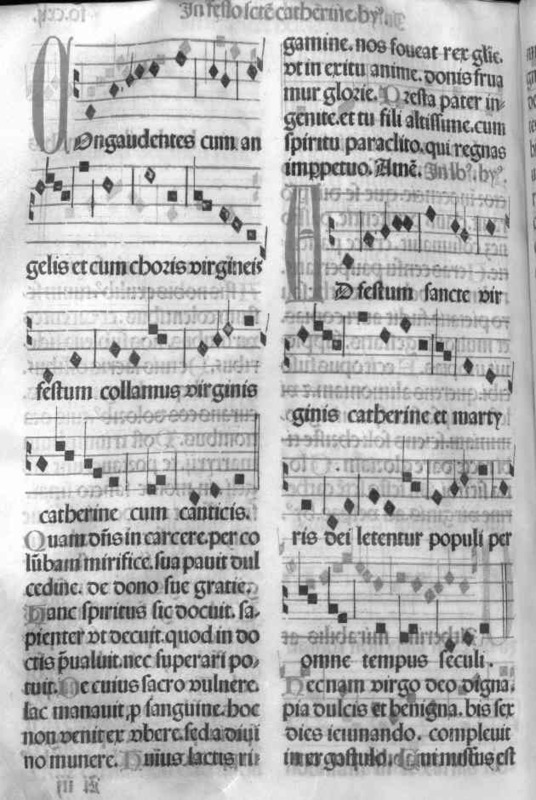 In festo scte catherine. hy⁹.
Congaudentes cum an
gelis et cum choris virgineis
festum collamus virginis
catherine cum canticis.
Quam dn̄s in carcere. per co
lūbam mirifice. sua pauit dul
cedine. de dono sue gratie.
Hanc spiritus sic docuit. sa⸗
pienter vt decuit. quod in do
ctis p̄ualuit. nec superari po⸗
tuit. De cuius sacro vulnere.
lac manauit, p sanguine. hoc
non venit ex vbere. sed a diui
no munere. Huius lactis ri⸗
gamine. nos foueat rex glīe.
vt in exitu anime. donis frua
mur glorie. Presta pater in⸗
genite. et tu fili altissime. cum
spiritu paraclito. qui regnas
imppetuo. Amē. In lb⁹. hy⁹.
AD festum sancte vir
ginis catherine et marty
ris dei letentur populi per
omne tempus seculi.
Hec nam virgo deo digna.
pia dulcis et benigna. bis sex
dies ieiunando. compleuit
in ergastulo. Cui missus est